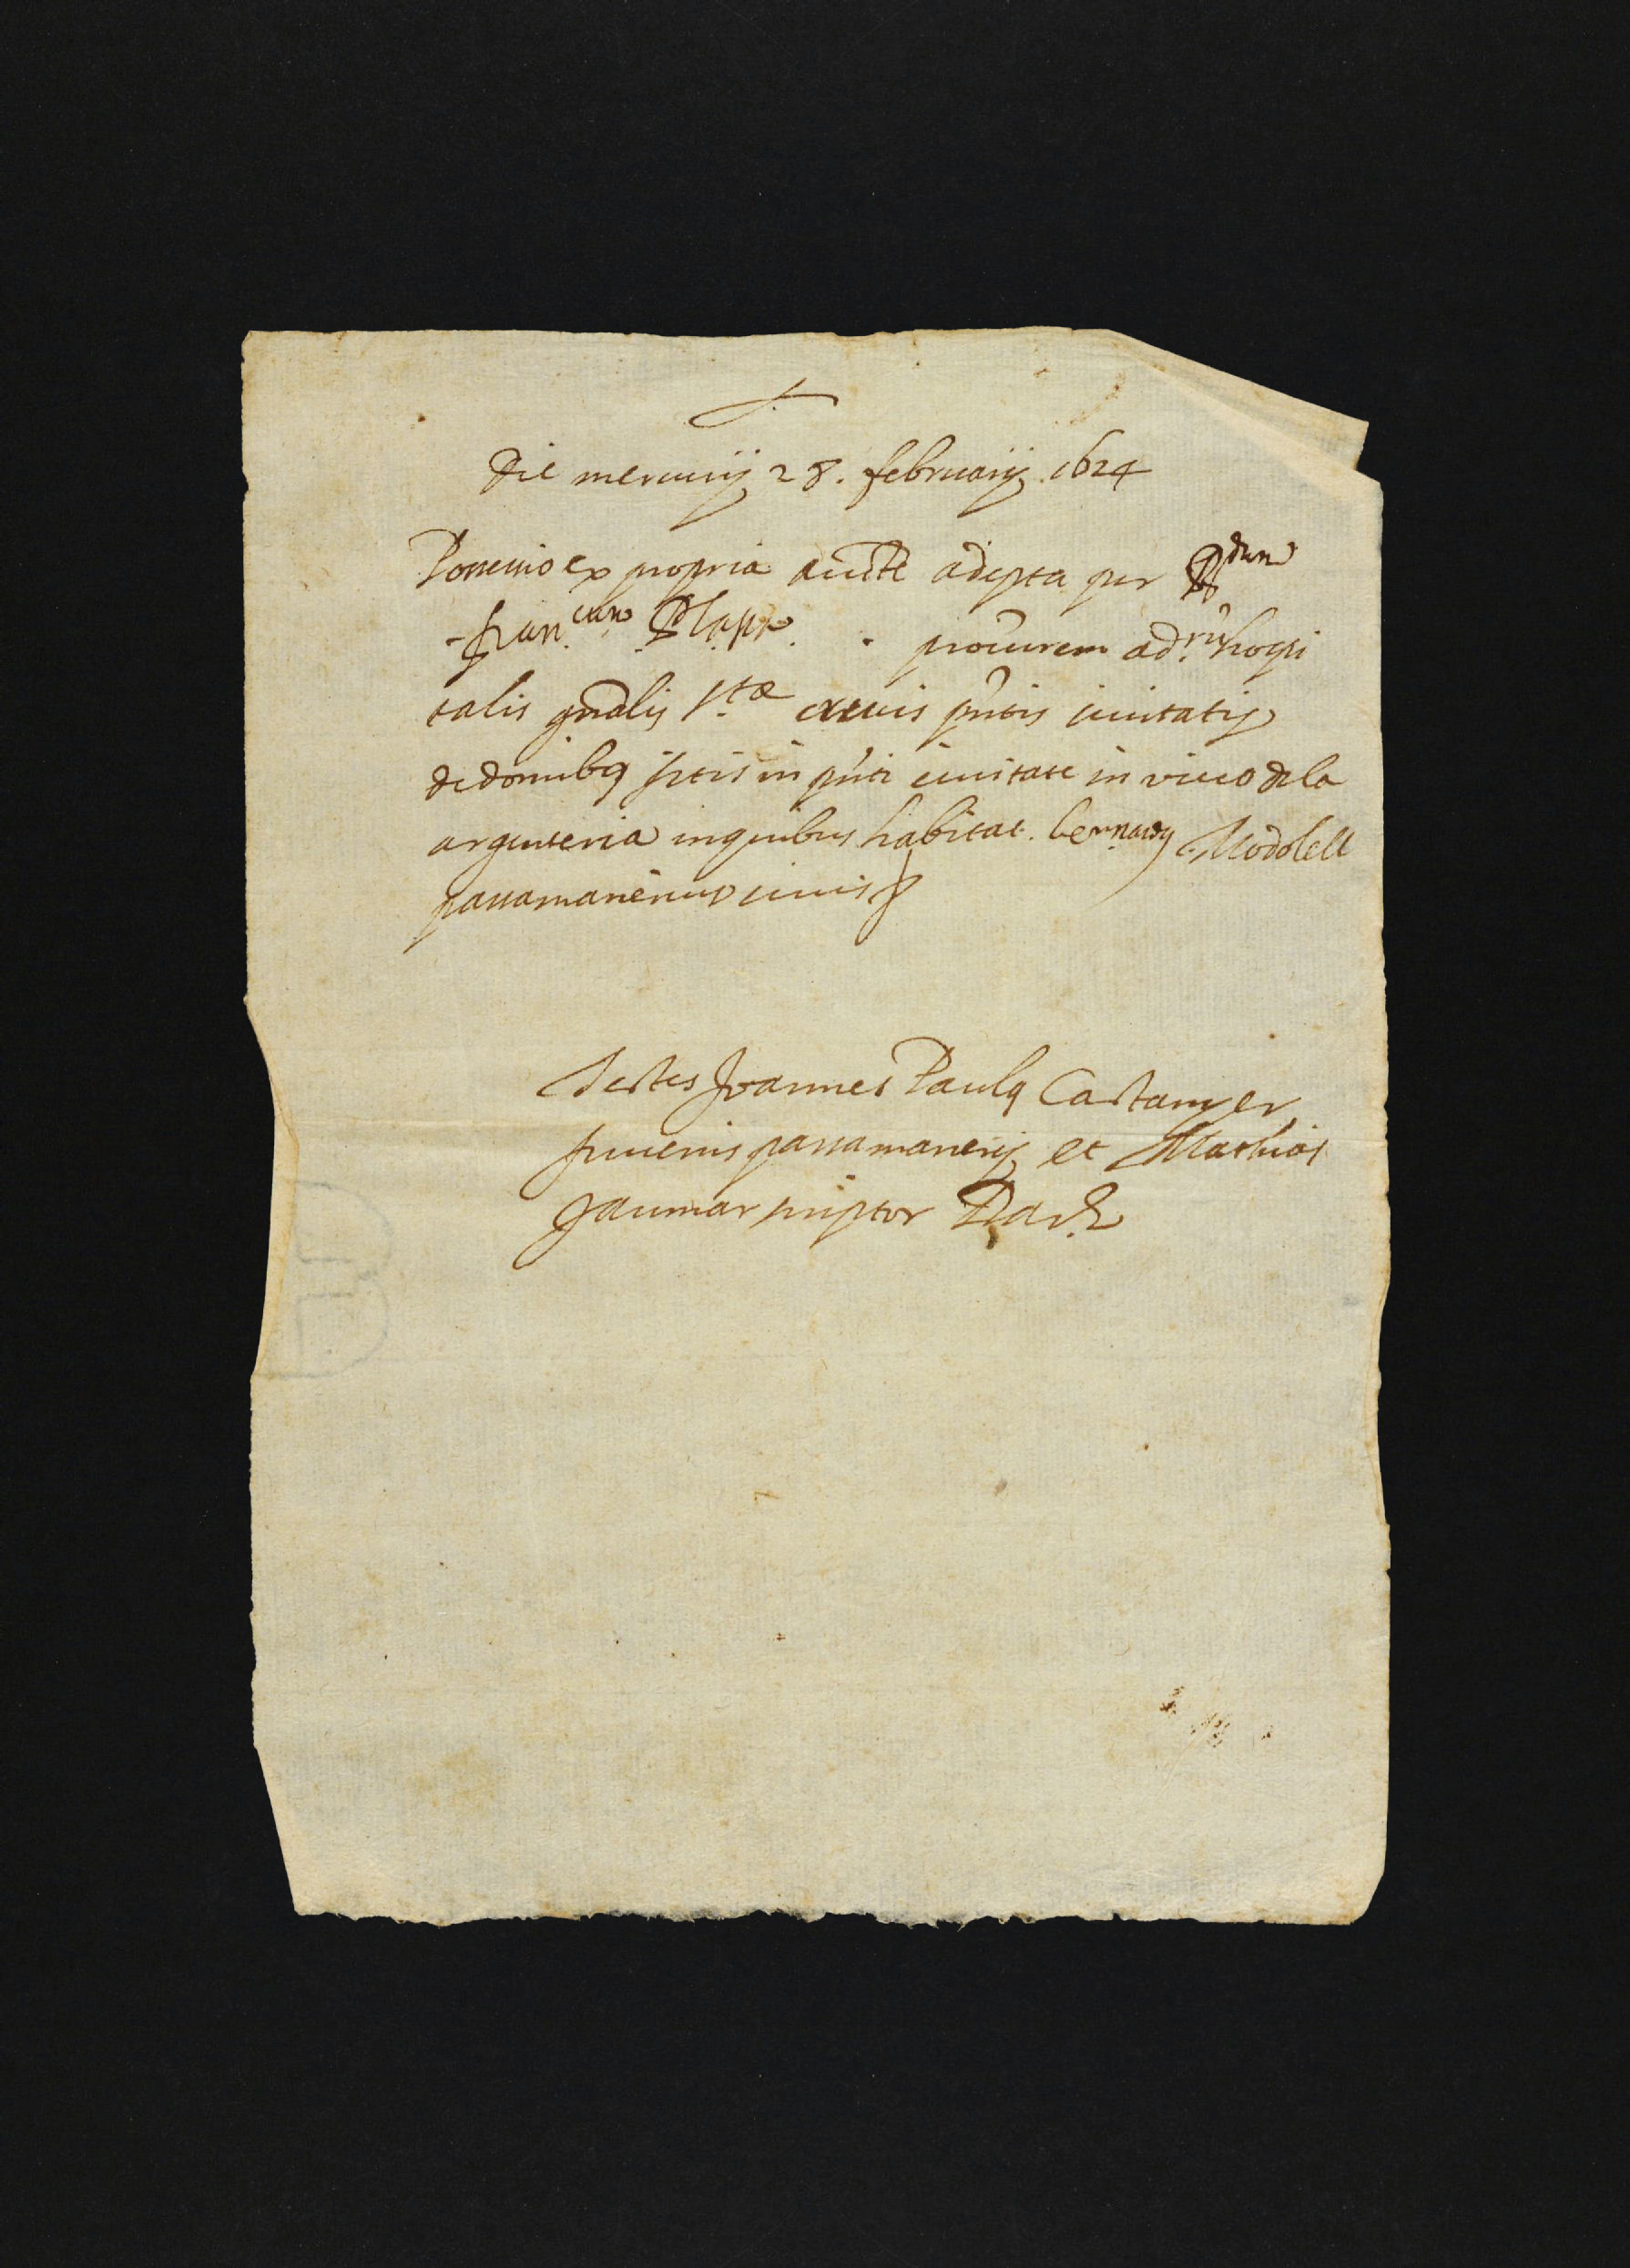 Die mercurij 28. februarij 1624
Possessio ex propria aucte adepta per Rdum
fran.cum procurem ad.rũ hospi
talis gñalis S.tæ crucis pñtis ciuitatis
de domibus sitis in pñti ciuitate in vico de la
argenteria in quibus habitat. bernardus Modolell
passamanerius ciuis
Testes Joannes Paulus Castanyer
Juuenis passamanerij et Mathias
Jaumar scriptor Bar.e